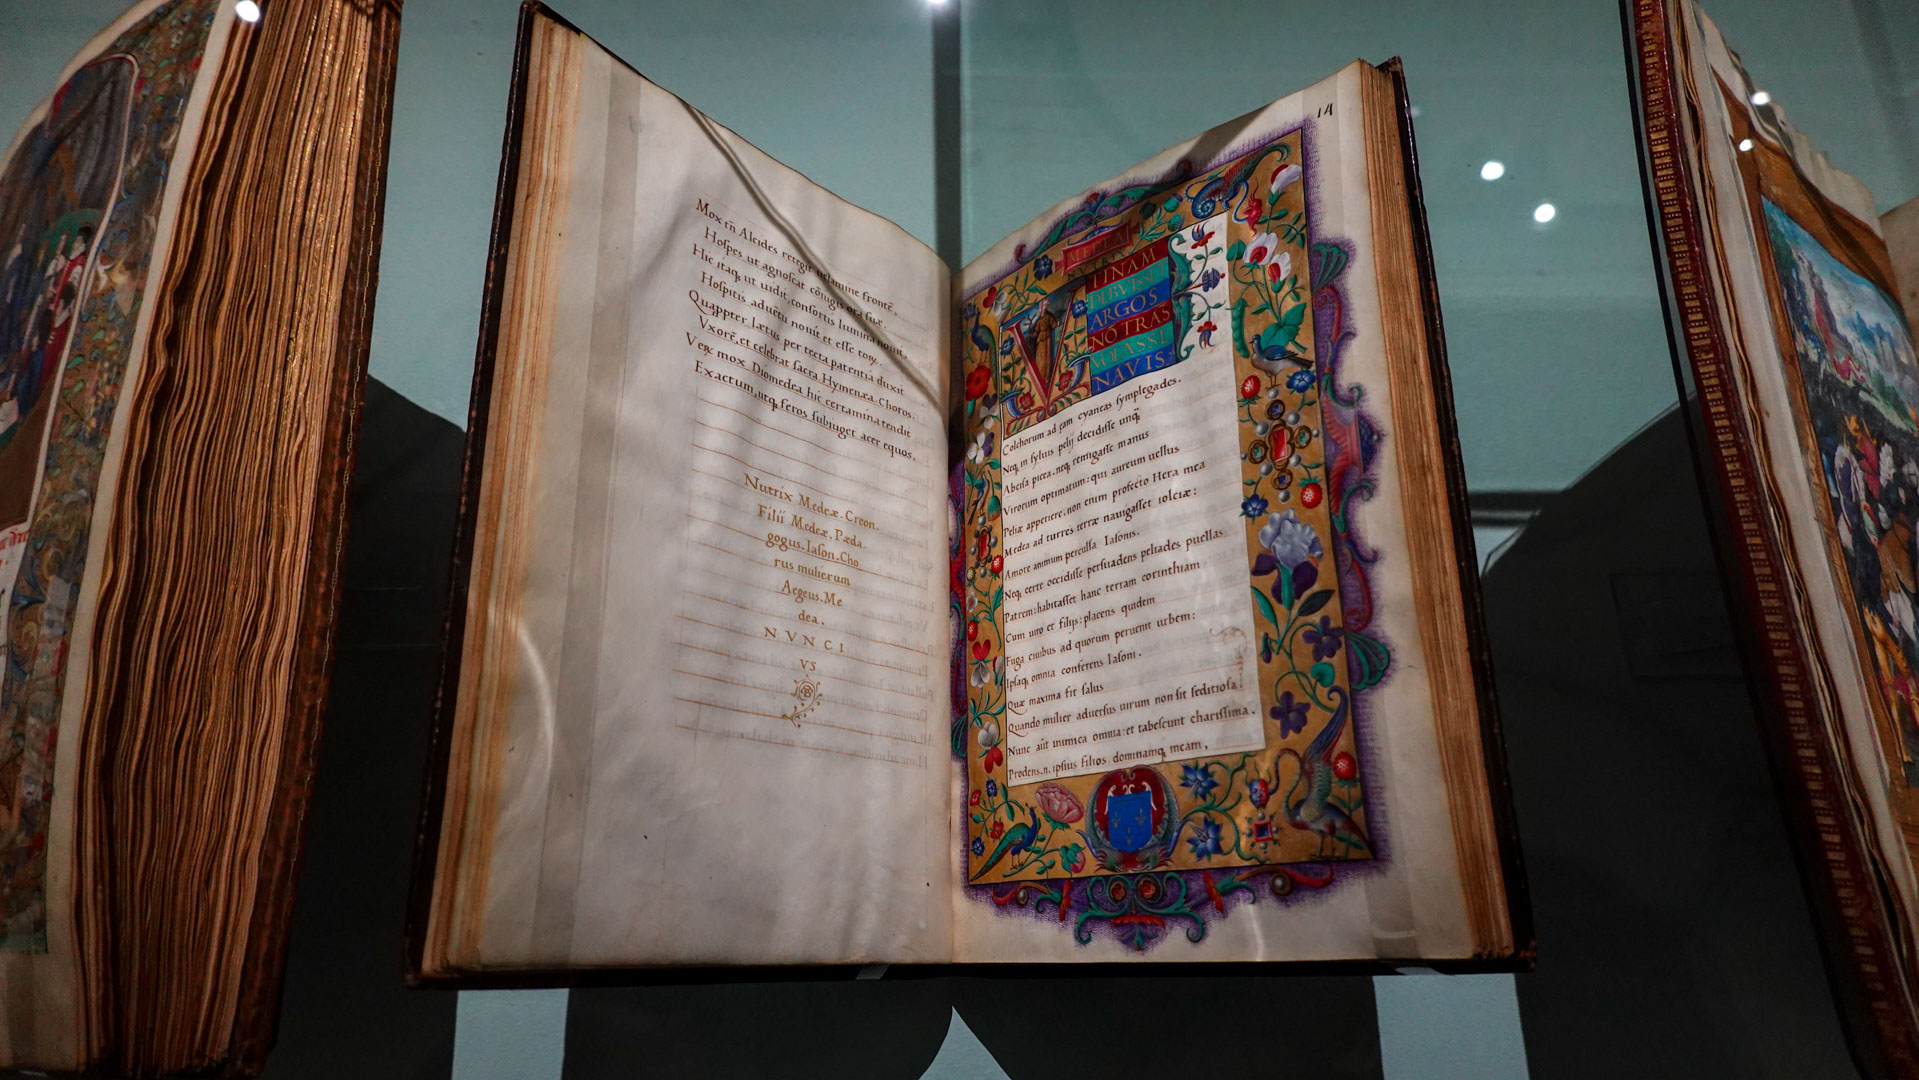 Mox eñ Alcides retegit uelamine frontē,
Hospes ut agnoscat cōiugis ora suę.
Hic itaq, ut uidit, consortis lumina nouit,
Hospitis aduētu nouit et esse torų.
Quappter lætus per tecta patentia duxit
Vxorē, et celebrat sacra Hymenæa Choros.
Verų mox Diomedea hic certamina tendit
Exactum, utq, feros subiuget acer equos.
Nutrix Medeæ. Creon.
Filii Medeæ. Pæda
gogus. Iason. Cho
rus mulierum
Aegeus. Me
dea.
NVNCI
VS
14
MEDEA
NVTRIX
VTINAM
DEBVISSET
ARGOS
NO TRAS
VOLASSE
NAVIS
Colchorum ad eam cyaneas symplegades.
Neq, in syluis pelij decidisse unq̃
Abcisa picea. neq, remigasse manus
Virorum optimatum: qui aureum uellus
Peliæ appetiere. non enim profecto Hera mea
Medea ad turres terræ nauigasset iolciæ:
Amore animum perculsa Iasonis.
Neq, certe occidisse persuadens peliades puellas
Patrem: habitasset hanc terram corinthiam
Cum uiro et filijs: placens quidem
Fuga ciuibus ad quorum peruenit urbem:
Ipsaq, omnia conferens Iasoni.
Quæ maxima fit salus
Quando mulier aduersus uirum non sit seditiosa
Nunc aūt inimica omnia: et tabescunt charissima.
Prodens .n. ipsius filios dominamq, meam,